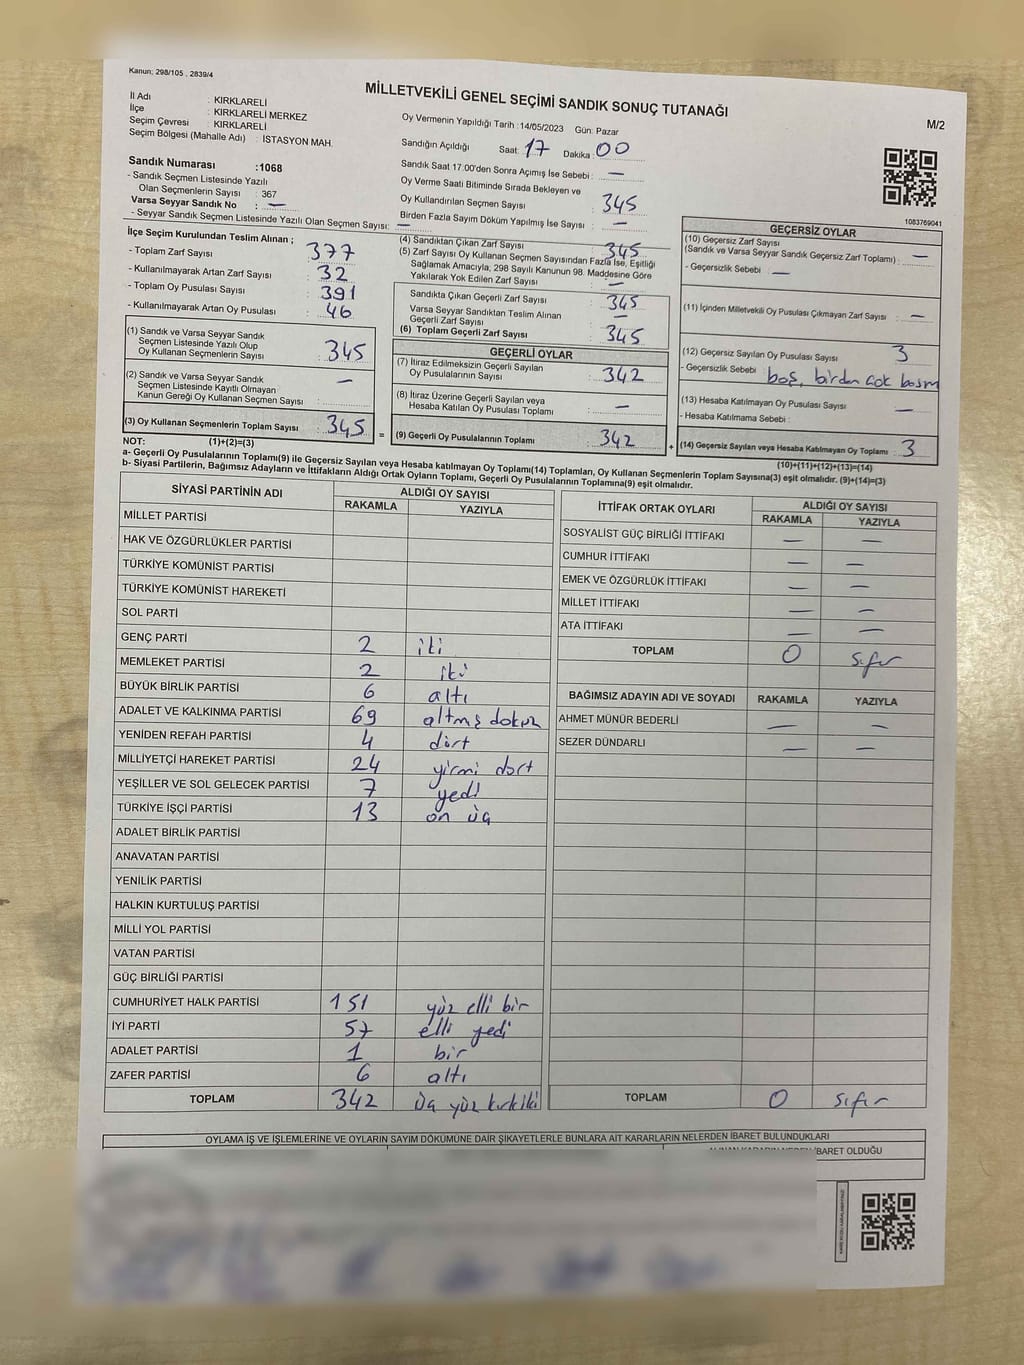 Kanun: 298/105 , 2839/4
MİLLETVEKİLİ GENEL SEÇİMİ SANDIK SONUÇ TUTANAĞI
M/2
İl Adı : KIRKLARELİ
İlçe : KIRKLARELİ MERKEZ
Seçim Çevresi : KIRKLARELİ
Seçim Bölgesi (Mahalle Adı) : İSTASYON MAH.
Sandık Numarası :1068
- Sandık Seçmen Listesinde Yazılı
Olan Seçmenlerin Sayısı : 367
Varsa Seyyar Sandık No : —
- Seyyar Sandık Seçmen Listesinde Yazılı Olan Seçmen Sayısı: —
Oy Vermenin Yapıldığı Tarih :14/05/2023 Gün: Pazar
Sandığın Açıldığı Saat: 17 Dakika: 00
Sandık Saat 17:00'den Sonra Açımış İse Sebebi : —
Oy Verme Saati Bitiminde Sırada Bekleyen ve
Oy Kullandırılan Seçmen Sayısı : 345
Birden Fazla Sayım Döküm Yapılmış İse Sayısı : —
1083769041
İlçe Seçim Kurulundan Teslim Alınan ;
- Toplam Zarf Sayısı : 377
- Kullanılmayarak Artan Zarf Sayısı : 32
- Toplam Oy Pusulası Sayısı : 391
- Kullanılmayarak Artan Oy Pusulası : 46
(1) Sandık ve Varsa Seyyar Sandık
Seçmen Listesinde Yazılı Olup
Oy Kullanan Seçmenlerin Sayısı : 345
(2) Sandık ve Varsa Seyyar Sandık
Seçmen Listesinde Kayıtlı Olmayan
Kanun Gereği Oy Kullanan Seçmen Sayısı : —
(3) Oy Kullanan Seçmenlerin Toplam Sayısı : 345
(4) Sandıktan Çıkan Zarf Sayısı : 345
(5) Zarf Sayısı Oy Kullanan Seçmen Sayısından Fazla İse, Eşitliği
Sağlamak Amacıyla, 298 Sayılı Kanunun 98. Maddesine Göre
Yakılarak Yok Edilen Zarf Sayısı : —
Sandıkta Çıkan Geçerli Zarf Sayısı : 345
Varsa Seyyar Sandıktan Teslim Alınan
Geçerli Zarf Sayısı : —
(6) Toplam Geçerli Zarf Sayısı : 345
GEÇERLİ OYLAR
(7) İtiraz Edilmeksizin Geçerli Sayılan
Oy Pusulalarının Sayısı : 342
(8) İtiraz Üzerine Geçerli Sayılan veya
Hesaba Katılan Oy Pusulası Toplamı : —
= (9) Geçerli Oy Pusulalarının Toplamı : 342
GEÇERSİZ OYLAR
(10) Geçersiz Zarf Sayısı
(Sandık ve Varsa Seyyar Sandık Geçersiz Zarf Toplamı) : —
- Geçersizlik Sebebi : —
(11) İçinden Milletvekili Oy Pusulası Çıkmayan Zarf Sayısı : —
(12) Geçersiz Sayılan Oy Pusulası Sayısı : 3
- Geçersizlik Sebebi : boş, birden çok basım
(13) Hesaba Katılmayan Oy Pusulası Sayısı : —
- Hesaba Katılmama Sebebi :
+ (14) Geçersiz Sayılan veya Hesaba Katılmayan Oy Toplamı : 3
NOT: (1)+(2)=(3)
(10)+(11)+(12)+(13)=(14)
a- Geçerli Oy Pusulalarının Toplamı(9) ile Geçersiz Sayılan veya Hesaba katılmayan Oy Toplamı(14) Toplamları, Oy Kullanan Seçmenlerin Toplam Sayısına(3) eşit olmalıdır. (9)+(14)=(3)
b- Siyasi Partilerin, Bağımsız Adayların ve İttifakların Aldığı Ortak Oyların Toplamı, Geçerli Oy Pusulalarının Toplamına(9) eşit olmalıdır.
SİYASİ PARTİNİN ADI ALDIĞI OY SAYISI
RAKAMLA YAZIYLA
MİLLET PARTİSİ
HAK VE ÖZGÜRLÜKLER PARTİSİ
TÜRKİYE KOMÜNİST PARTİSİ
TÜRKİYE KOMÜNİST HAREKETİ
SOL PARTİ
GENÇ PARTİ 2 iki
MEMLEKET PARTİSİ 2 iki
BÜYÜK BİRLİK PARTİSİ 6 altı
ADALET VE KALKINMA PARTİSİ 69 altmış dokuz
YENİDEN REFAH PARTİSİ 4 dört
MİLLİYETÇİ HAREKET PARTİSİ 24 yirmi dört
YEŞİLLER VE SOL GELECEK PARTİSİ 7 yedi
TÜRKİYE İŞÇİ PARTİSİ 13 on üç
ADALET BİRLİK PARTİSİ
ANAVATAN PARTİSİ
YENİLİK PARTİSİ
HALKIN KURTULUŞ PARTİSİ
MİLLİ YOL PARTİSİ
VATAN PARTİSİ
GÜÇ BİRLİĞİ PARTİSİ
CUMHURİYET HALK PARTİSİ 151 yüz elli bir
İYİ PARTİ 57 elli yedi
ADALET PARTİSİ 1 bir
ZAFER PARTİSİ 6 altı
TOPLAM 342 üç yüz kırk iki
İTTİFAK ORTAK OYLARI ALDIĞI OY SAYISI
RAKAMLA YAZIYLA
SOSYALİST GÜÇ BİRLİĞİ İTTİFAKI — —
CUMHUR İTTİFAKI — —
EMEK VE ÖZGÜRLÜK İTTİFAKI — —
MİLLET İTTİFAKI — —
ATA İTTİFAKI — —
TOPLAM 0 sıfır
BAĞIMSIZ ADAYIN ADI VE SOYADI RAKAMLA YAZIYLA
AHMET MÜNÜR BEDERLİ — —
SEZER DÜNDARLI — —
TOPLAM 0 sıfır
OYLAMA İŞ VE İŞLEMLERİNE VE OYLARIN SAYIM DÖKÜMÜNE DAİR ŞİKAYETLERLE BUNLARA AİT KARARLARIN NELERDEN İBARET BULUNDUKLARI
İBARET OLDUĞU